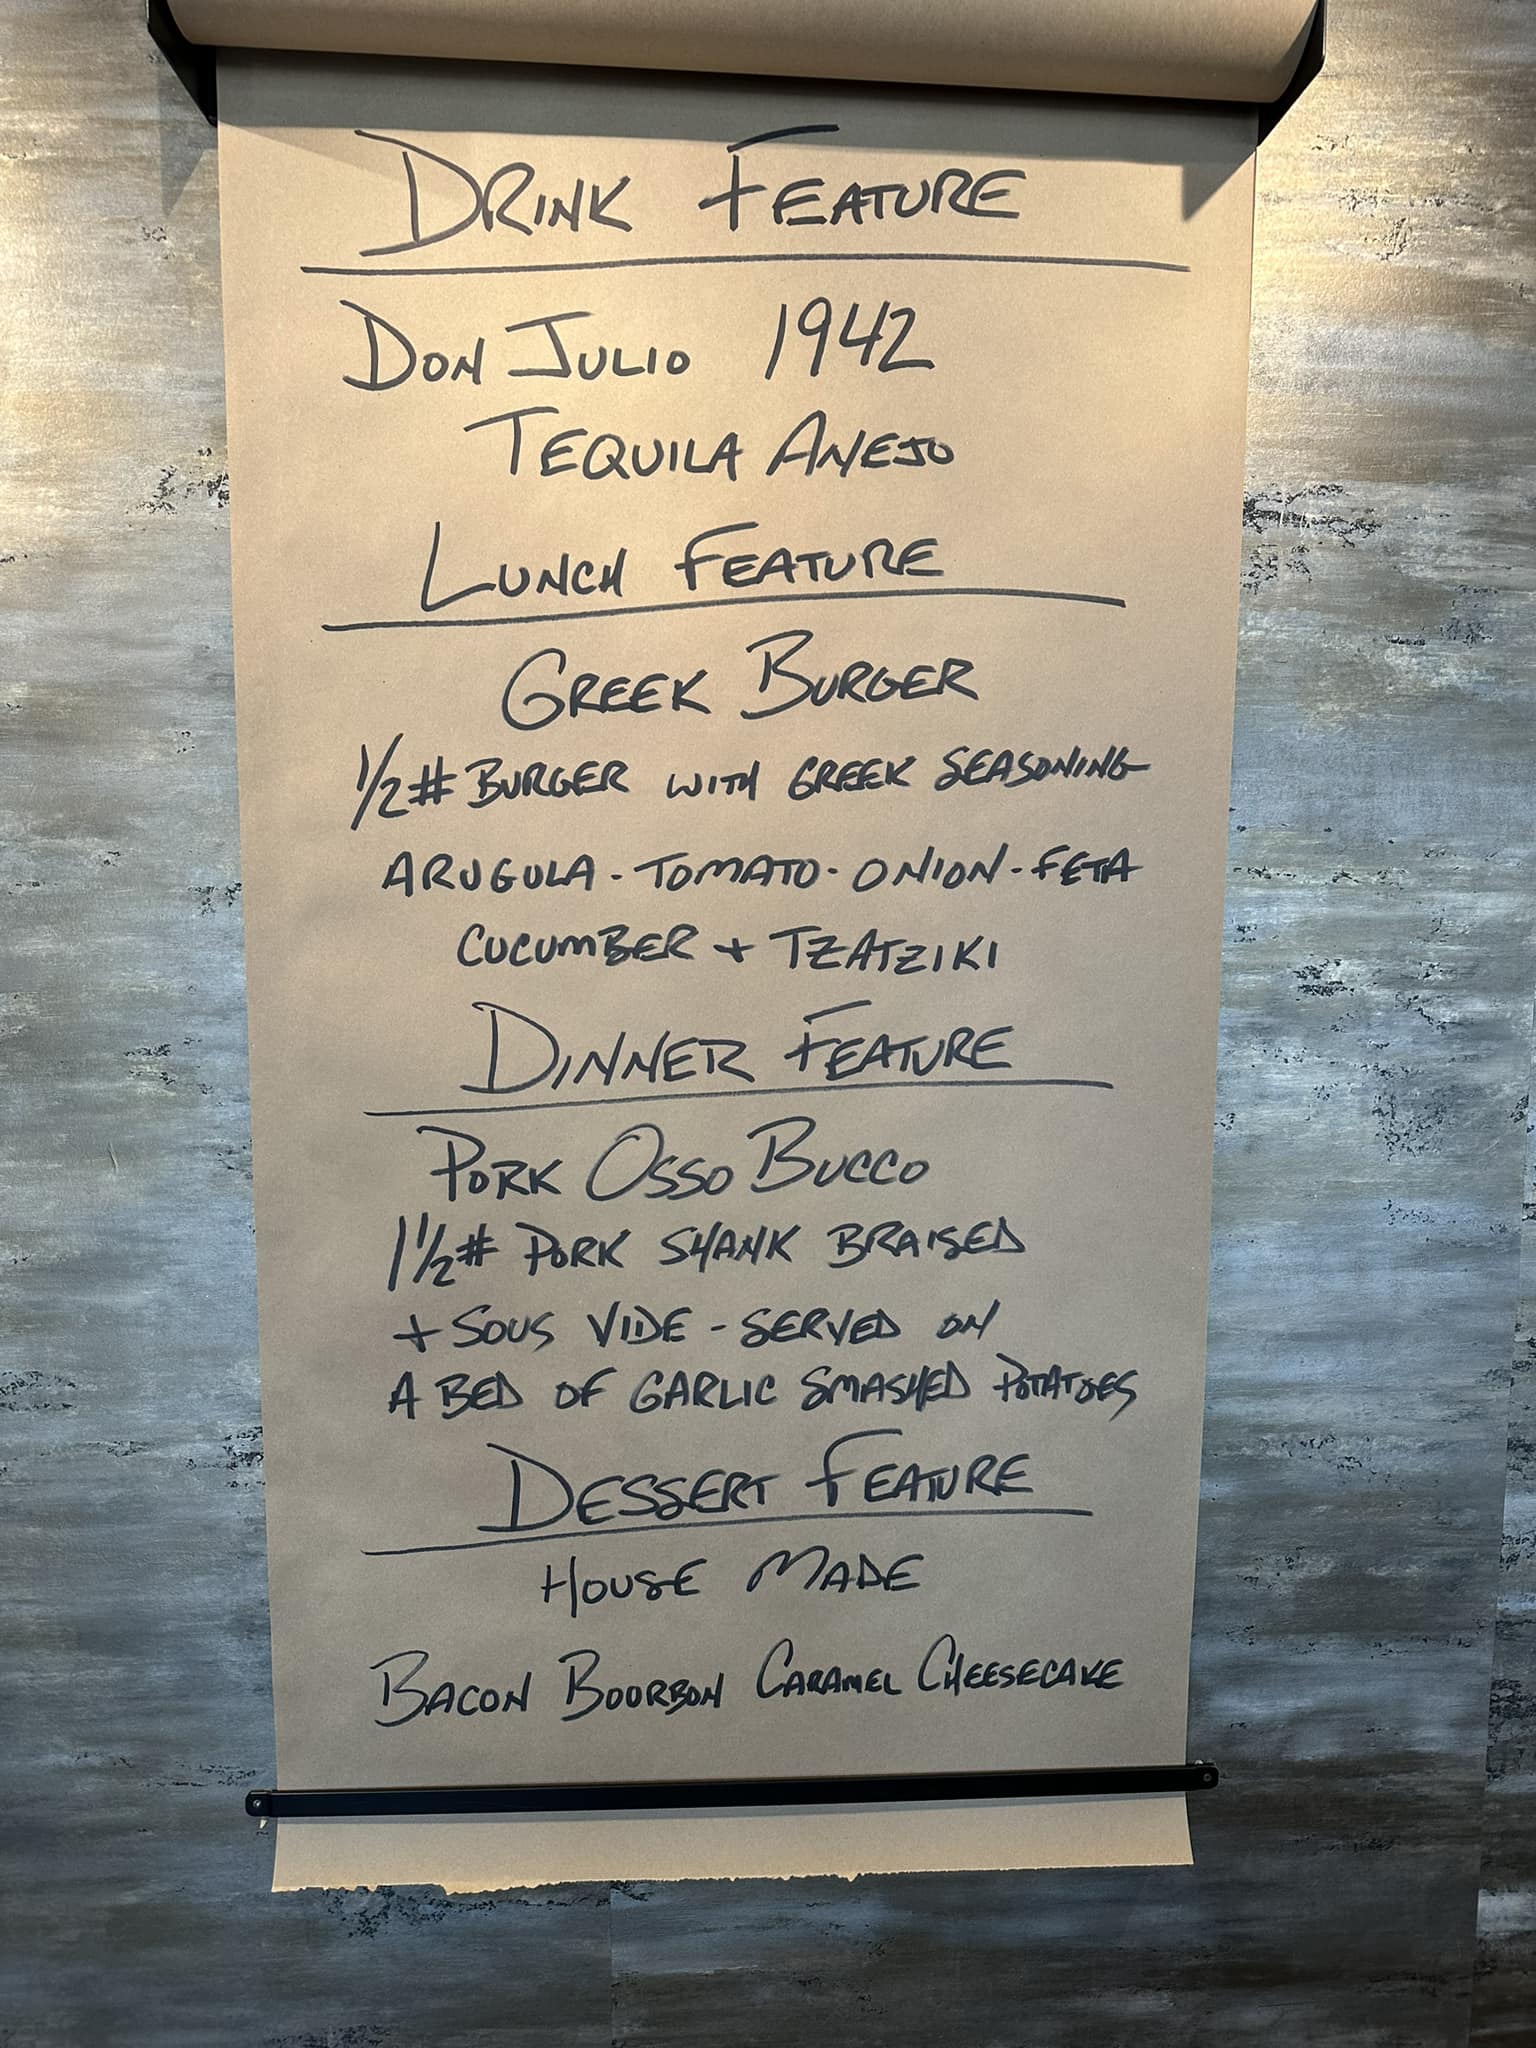 DRINK FEATURE
DON JULIO 1942
TEQUILA ANEJO
LUNCH FEATURE
GREEK BURGER
1/2# BURGER WITH GREEK SEASONING
ARUGULA - TOMATO - ONION - FETA
CUCUMBER + TZATZIKI
DINNER FEATURE
PORK OSSO BUCCO
1 1/2# PORK SHANK BRAISED
+ SOUS VIDE - SERVED ON
A BED OF GARLIC SMASHED POTATOES
DESSERT FEATURE
HOUSE MADE
BACON BOURBON CARAMEL CHEESECAKE